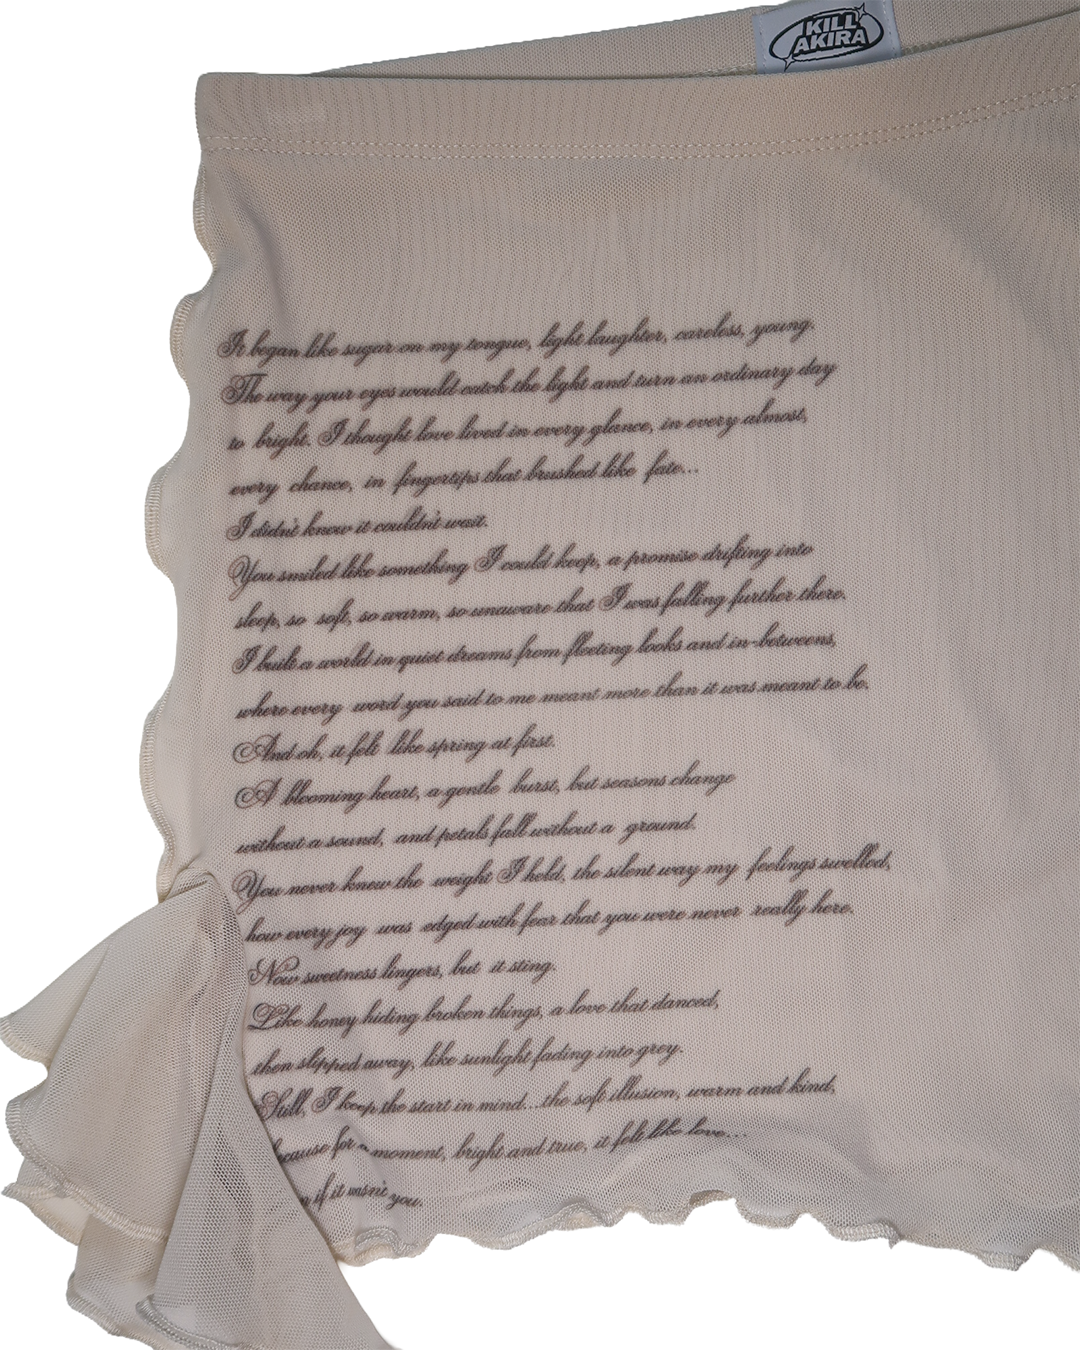 KILL
AKIRA
It began like sugar on my tongue, light laughter, careless, young.
The way your eyes would catch the light and turn an ordinary day
to bright. I thought love lived in every glance, in every almost,
every chance, in fingertips that brushed like fate...
I didn't know it couldn't wait.
You smiled like something I could keep, a promise drifting into
sleep, so soft, so warm, so unaware that I was falling further there.
I built a world in quiet dreams from fleeting looks and in-betweens,
where every word you said to me meant more than it was meant to be.
And oh, it felt like spring at first.
A blooming heart, a gentle burst, but seasons change
without a sound, and petals fall without a ground.
You never knew the weight I held, the silent way my feelings swelled,
how every joy was edged with fear that you were never really here.
Now sweetness lingers, but it sting.
Like honey hiding broken things, a love that danced,
then slipped away, like sunlight fading into grey.
Still, I keep the start in mind...the soft illusion, warm and kind,
cause for a moment, bright and true, it felt like love...
if it wasn't you.